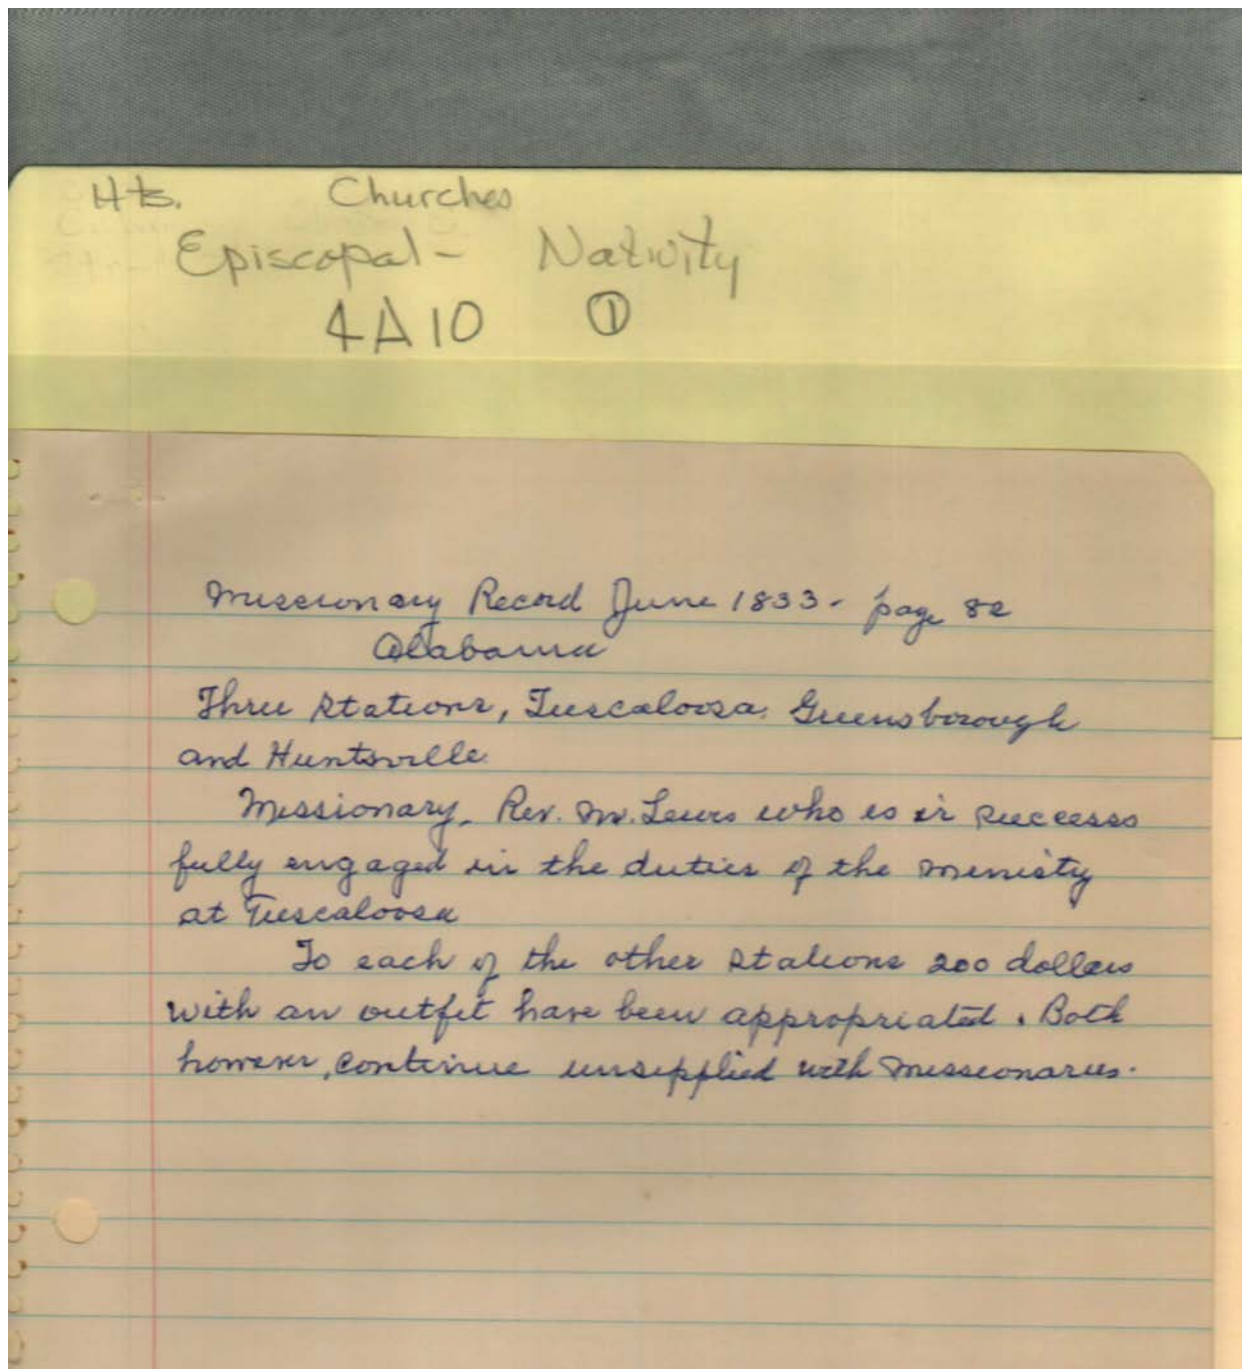 Hts. Churches
Episcopal - Nativity
4A10 ①
Missionary Record June 1833 - page 82
Alabama
Three Stations, Tuscaloosa, Greensborough
and Huntsville
Missionary, Rev. Mr. Lewis who is is success
fully engaged in the duties of the ministy
at Tuscaloosa
To each of the other stations 200 dollars
with an outfit have been appropriated. Both
however, continue unsupplied with missionaries.